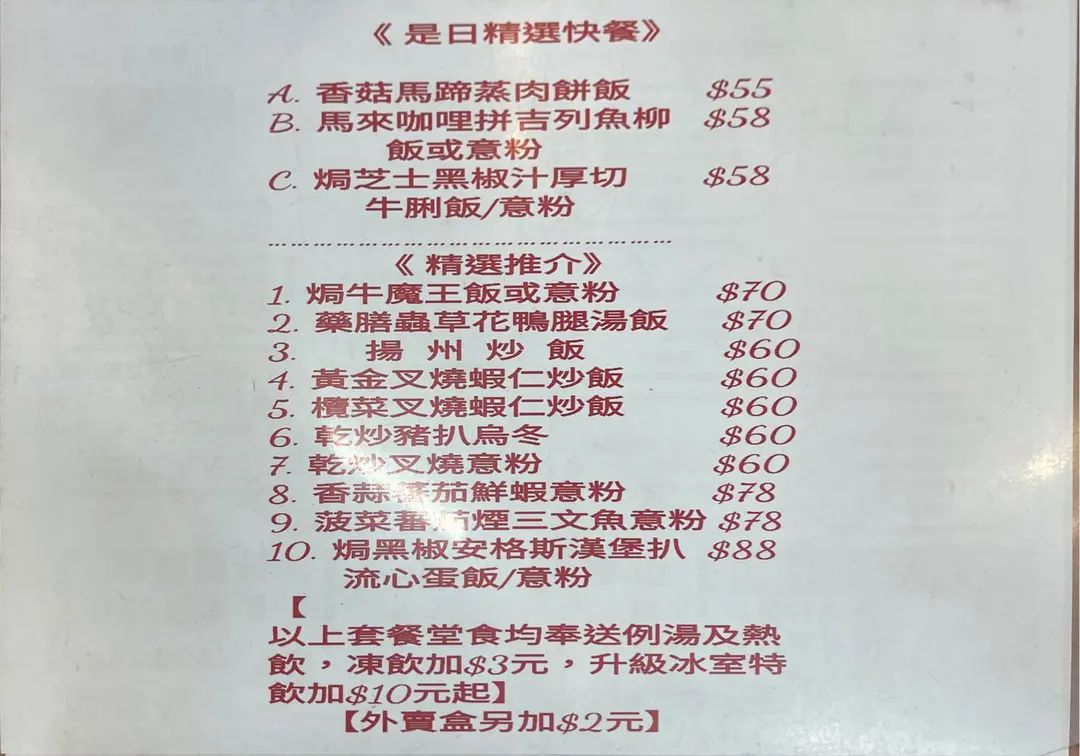 《是日精選快餐》
A. 香菇馬蹄蒸肉餅飯 $55
B. 馬來咖哩拼吉列魚柳 $58
飯或意粉
C. 焗芝士黑椒汁厚切 $58
牛脷飯/意粉
《精選推介》
1. 焗牛魔王飯或意粉 $70
2. 藥膳蟲草花鴨腿湯飯 $70
3. 揚州炒飯 $60
4. 黃金叉燒蝦仁炒飯 $60
5. 欖菜叉燒蝦仁炒飯 $60
6. 乾炒豬扒烏冬 $60
7. 乾炒叉燒意粉 $60
8. 香蒜蕃茄鮮蝦意粉 $78
9. 菠菜蕃茄煙三文魚意粉 $78
10. 焗黑椒安格斯漢堡扒 $88
流心蛋飯/意粉
【
以上套餐堂食均奉送例湯及熱
飲，凍飲加$3元，升級冰室特
飲加$10元起】
【外賣盒另加$2元】